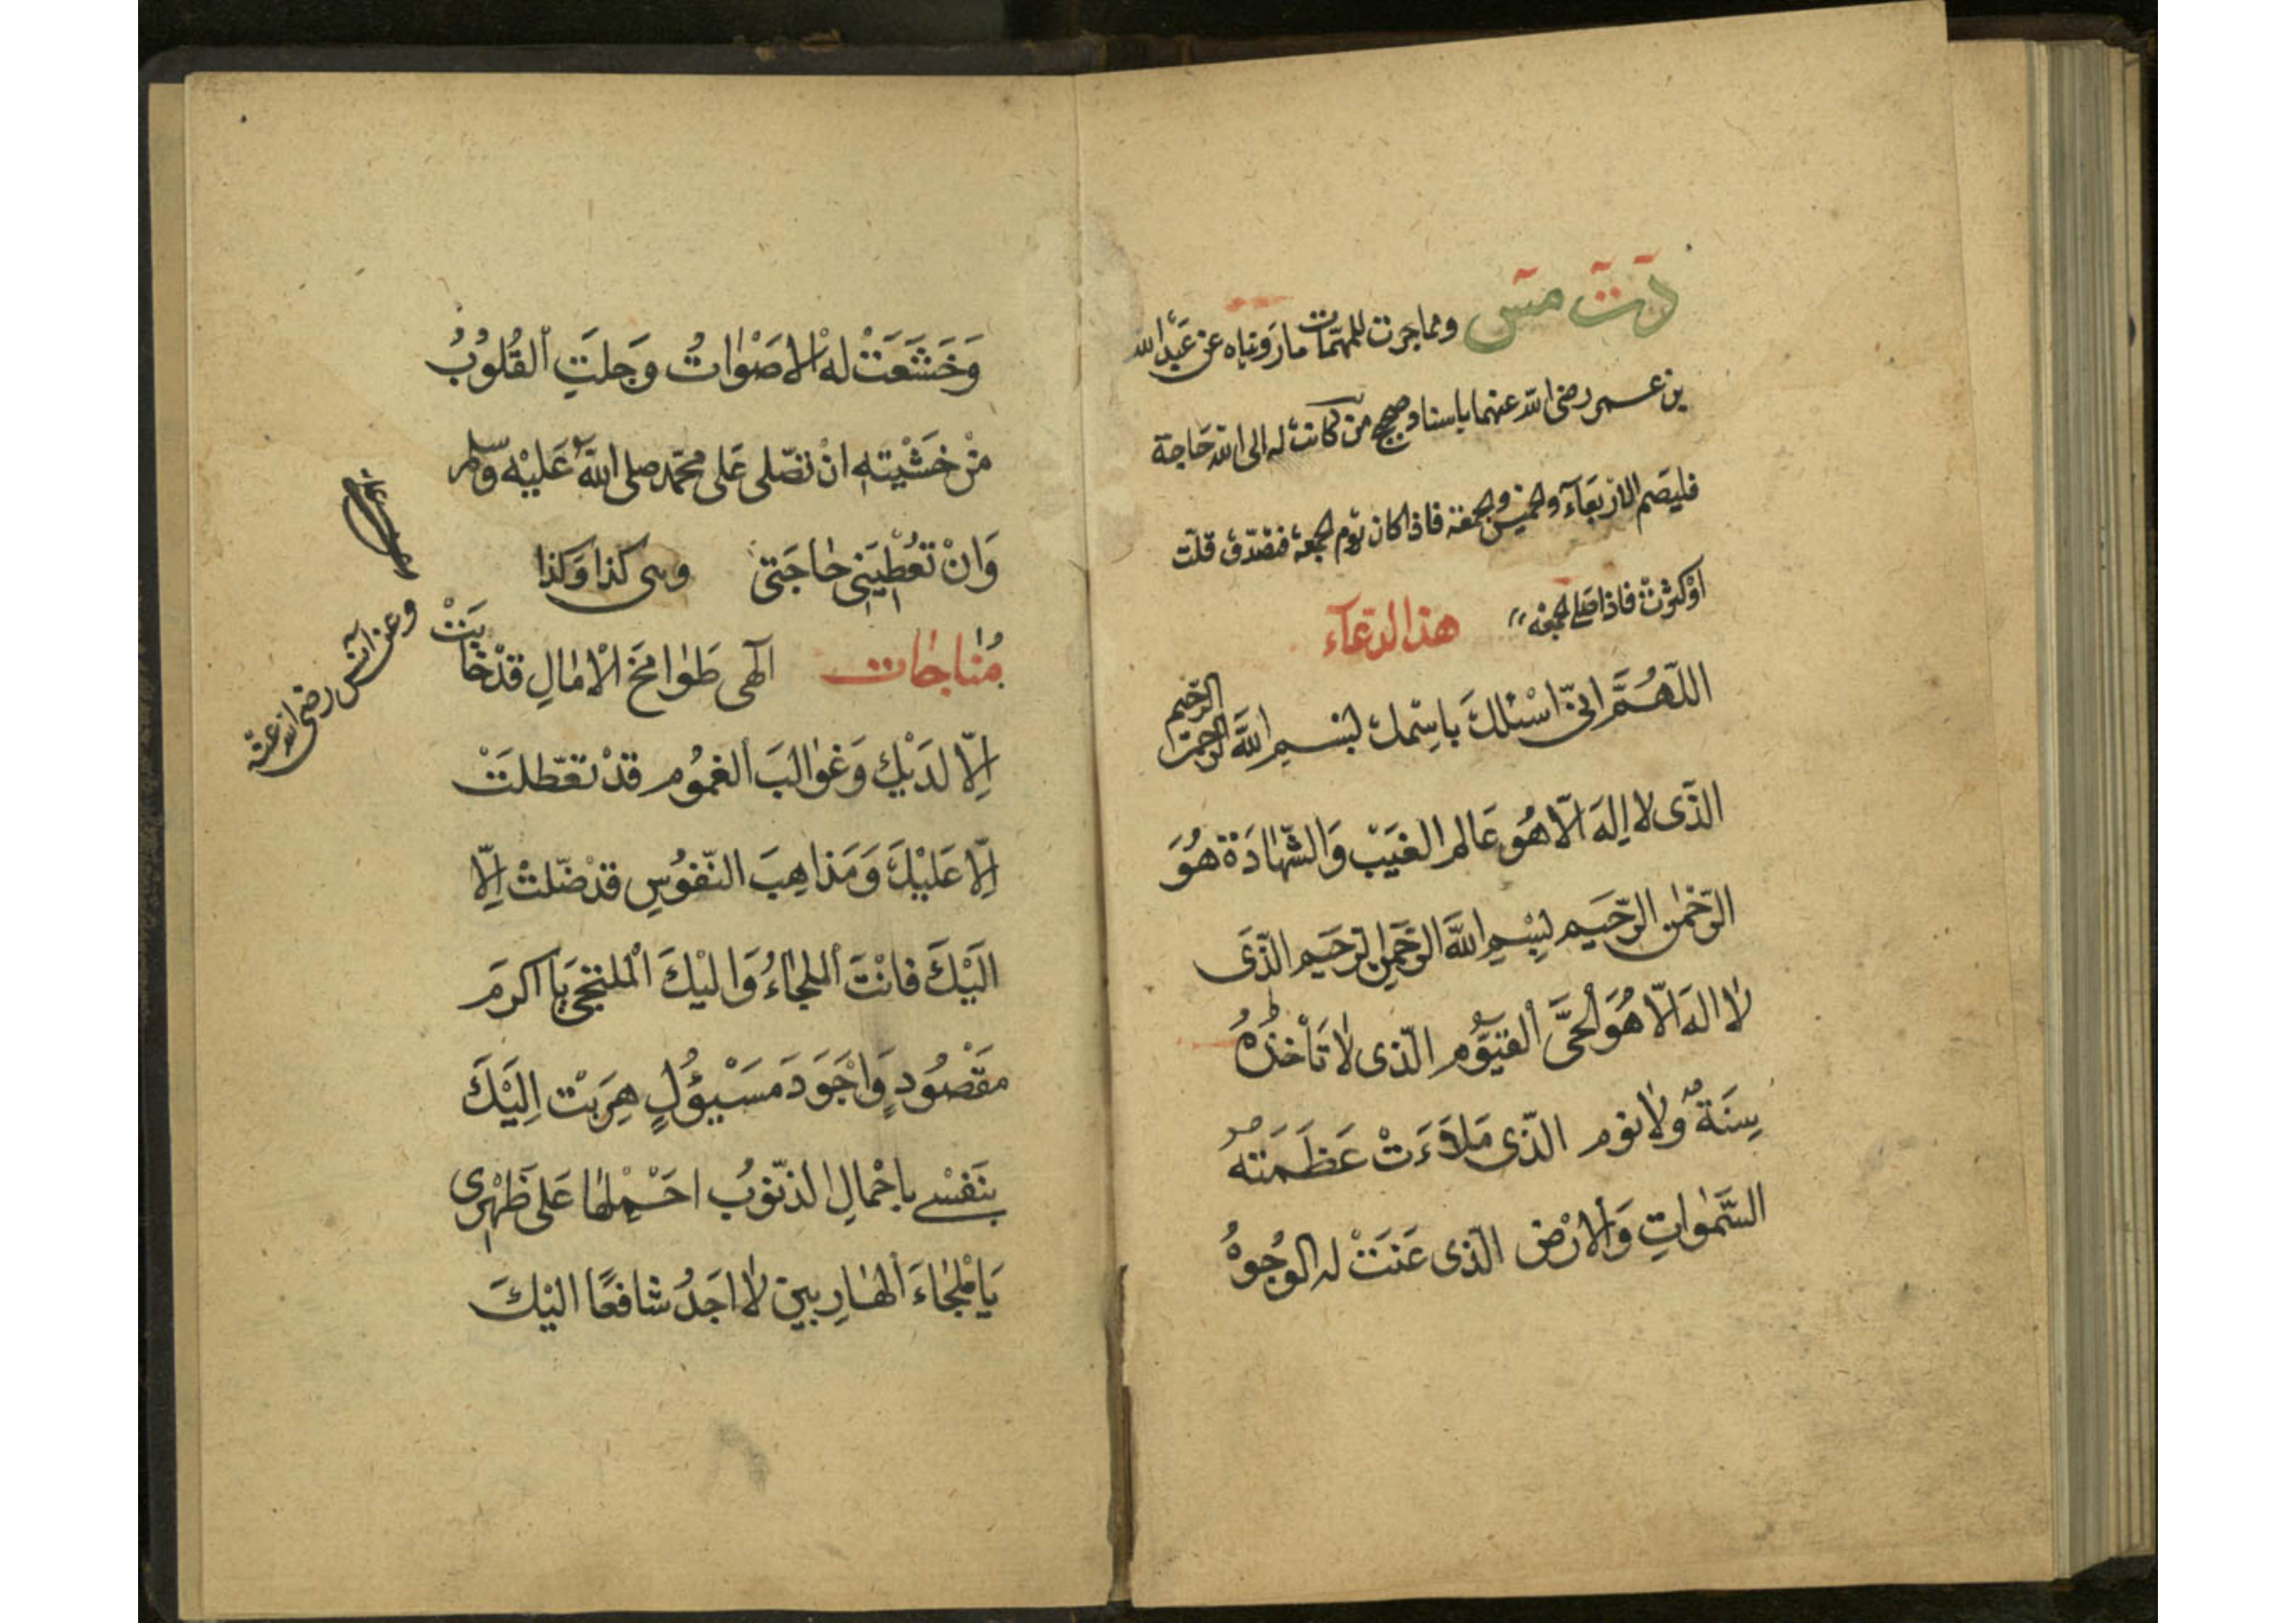 د ت ت مس ومما جرت للمهمّات ما رَويناه عن عَبْد الله
بن عمر رضى الله عنهما باسناد صحيح من كانت له الى الله حَاجة
فليصم الاربعَآء والخميس والجمعة فاذا كان يَوم الجمعة فتصدّق قلّت
اَوْ كثرتْ فاذا صلى الجمعة هذا الدّعآء
اللّهُمَّ انّى اسْئلكَ باسْمك بسم الله الرّحمن الرّحيم
الذّى لا اِلهَ الّا هُو عَالم الغيَبْ وَالشّهادَة هُوَ
الرّحْمٰن الرّحَيم بِسْمِ اللهَ الرّحَمن الرّحَيم الذّى
لا اله الّا هُوَ الْحىَّ القيّوُم الذّى لا تَأخذهُ
سِنَةٌ وَلا نوم الذّى مَلأَءَتْ عَظَمَتهُ
السَّمٰواتِ وَالارْض الذّى عَنَتْ له الوُجوُهُ
وَخَشَعَتْ لهُ الاصْوٰاتُ وَجلَتِ القُلوُبُ
منْ خَشْيتهِ انْ تصّلى عَلى محمّد صلى اللهُ عَليْه وسلم
وَانْ تعُطْيَنى حٰاجَتى وهى كذا وَكذا
مُنٰاجٰات الٓهى طَوٰامحَ الاْمٰالِ قدْخٰابَتْ
اِلّا لدَيْكَ وَغوٰالبَ الغمُوُم قدْ تعّطلَتْ
اِلّا عَليْكَ وَمَذاهِبَ النّفوُسِ قدْ ضّلتْ اِلّا
اليْكَ فانْتَ الملجٰاءُ وَاليْكَ الْملتجٰى يٰا اكرمَ
مقَصْوُدٍ وَاجَوَدَ مَسْيؤُلٍ هرَبتْ اِليَكَ
بنَفسْى باحْمالِ الذّنوُب احَمْلهٰا عَلى ظَهْرى
يَا مْلجٰاءَ الْهٰارِبينَ لا اجَدُ شافعًا اليْكَ
وعن انس رضى الله عنه